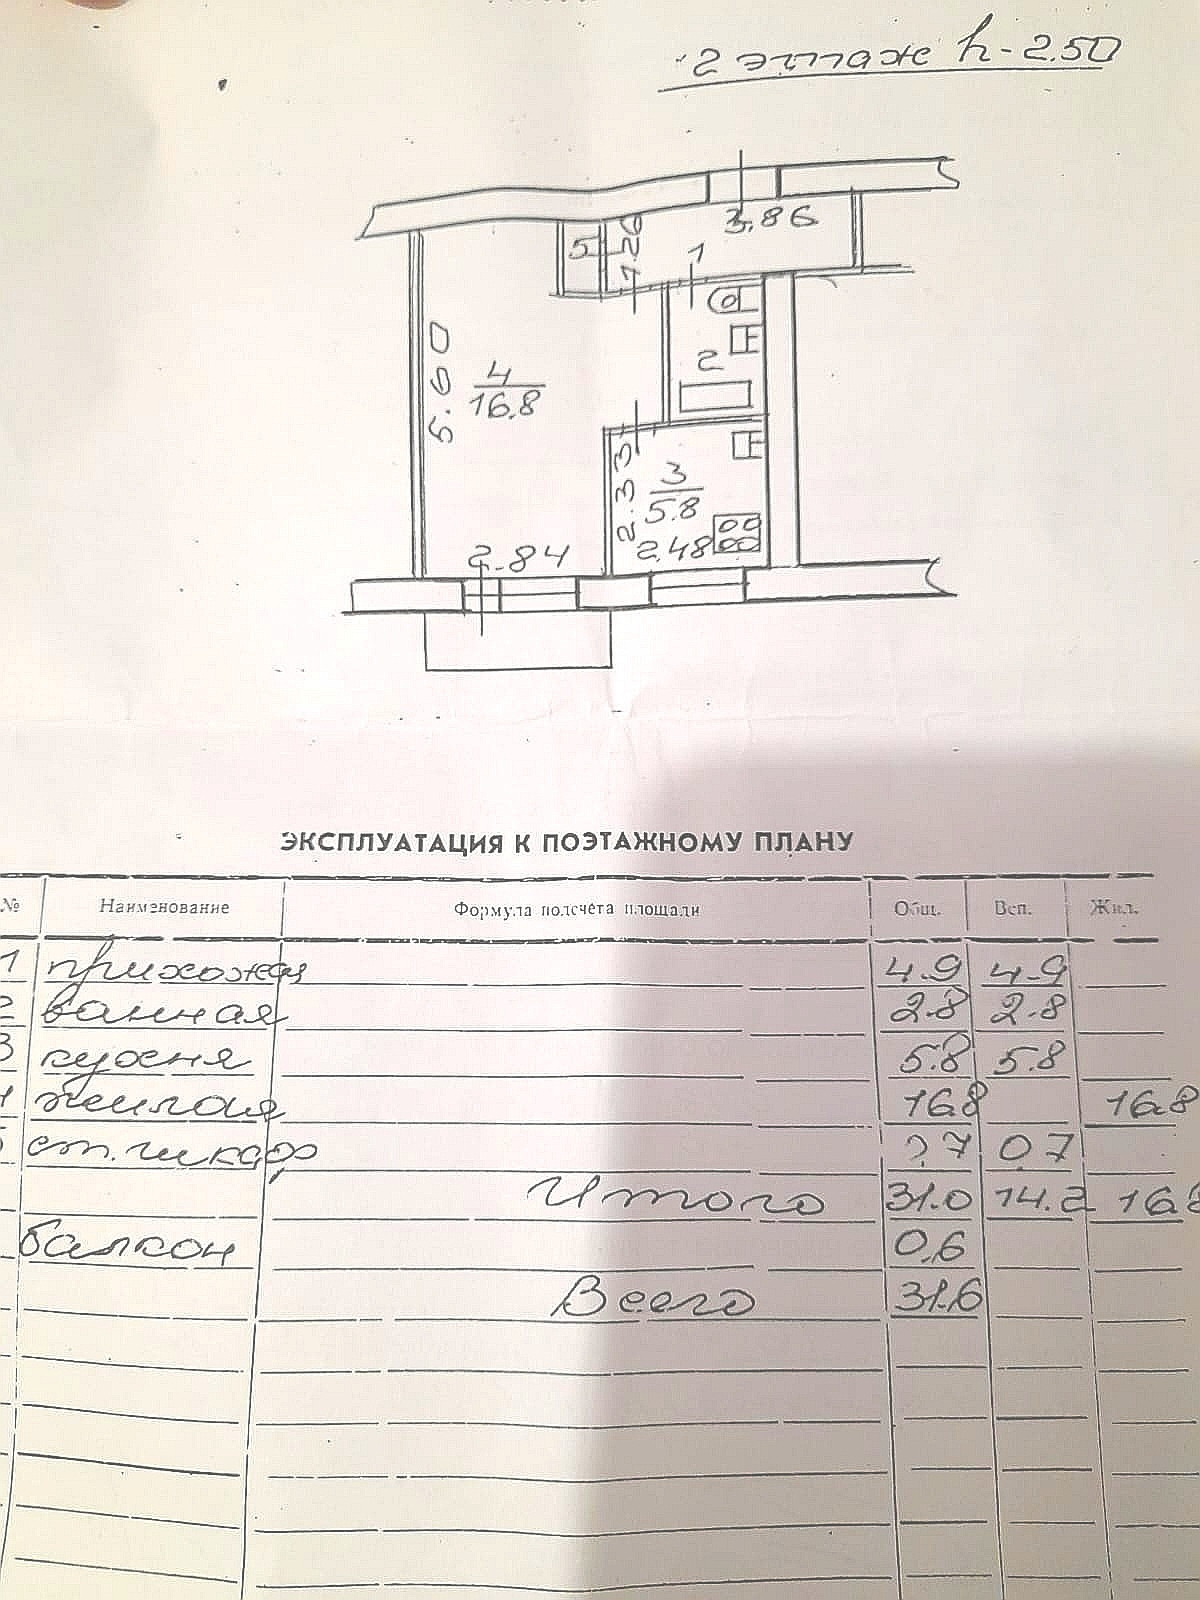 2 этаж h-2.50
3.86
5 1.26 1
5.60
4
16.8
2
2.33
3
5.8
2.84
2.48
ЭКСПЛУАТАЦИЯ К ПОЭТАЖНОМУ ПЛАНУ
№ Наименование Формула подсчета площади Общ. Всп. Жил.
1 прихожая 4.9 4.9
2 ванная 2.8 2.8
3 кухня 5.8 5.8
4 жилая 16.8 16.8
5 ст. шкаф 0.7 0.7
Итого 31.0 14.2 16.8
балкон 0.6
Всего 31.6